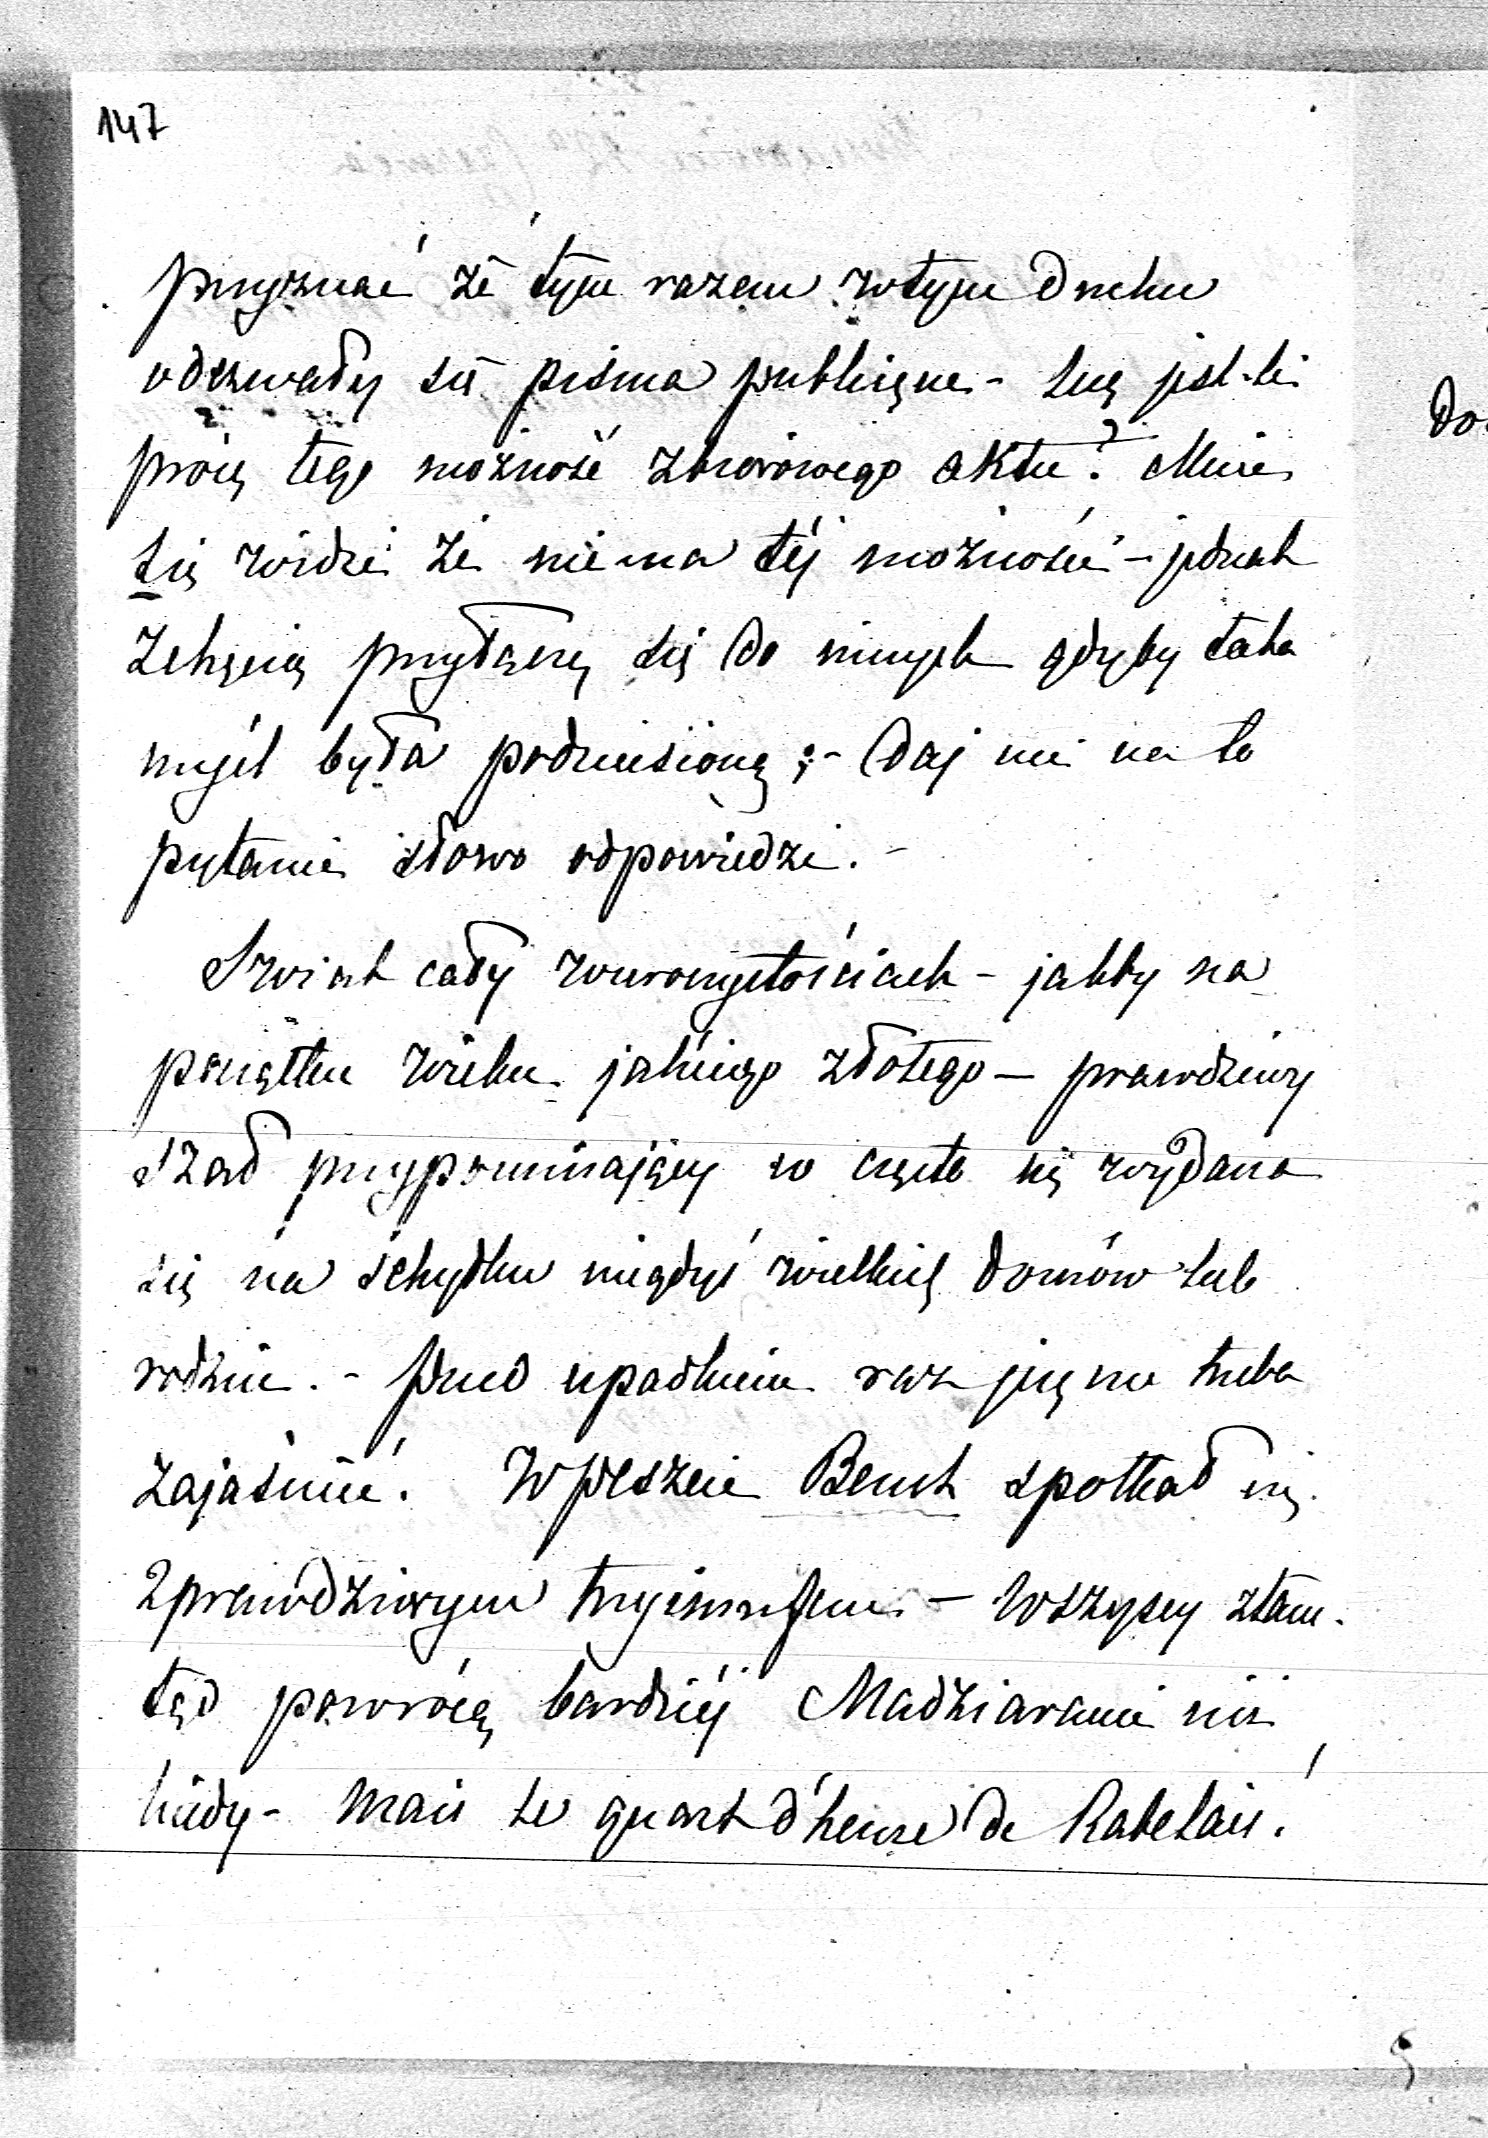 147
przyznać że tym razem w tym duchu
odezwały się pisma publiczne - lecz jest-li
prócz tego możność zbiorowego aktu? Mnie
się widzi że niema téj możności - jednak
z chęcią przyłączę się do innych gdyby taka
myśl była podniesioną; - Daj mi na to
pytanie słowo odpowiedzi. -
Świat cały w uroczystościach - jakby na
początku wieku jakiego złotego - prawdziwy
szał przypominający co często się wydarza
się na schyłku niegdyś wielkich domów lub
rodzin. - przed upadkiem raz jeszcze trzeba
zajaśnić! W Peszcie Beust spotkał się
z prawdziwym tryiumfem - wszyscy ztam-
tąd powrócą bardziéj Madziarami niż
kiedy - mais le quart d'heure de Rabelais!